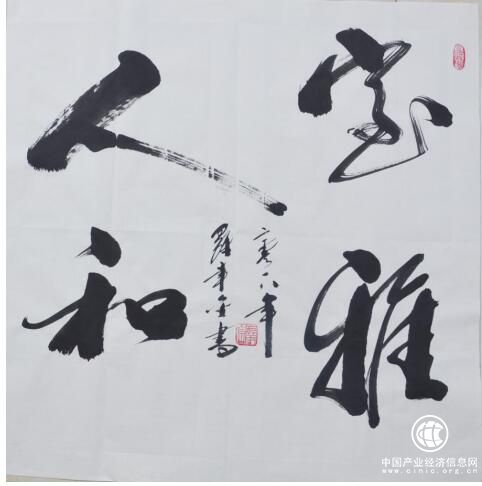 室雅
人和
零八年
書
中国产业经济信息网
www.cinic.org.cn